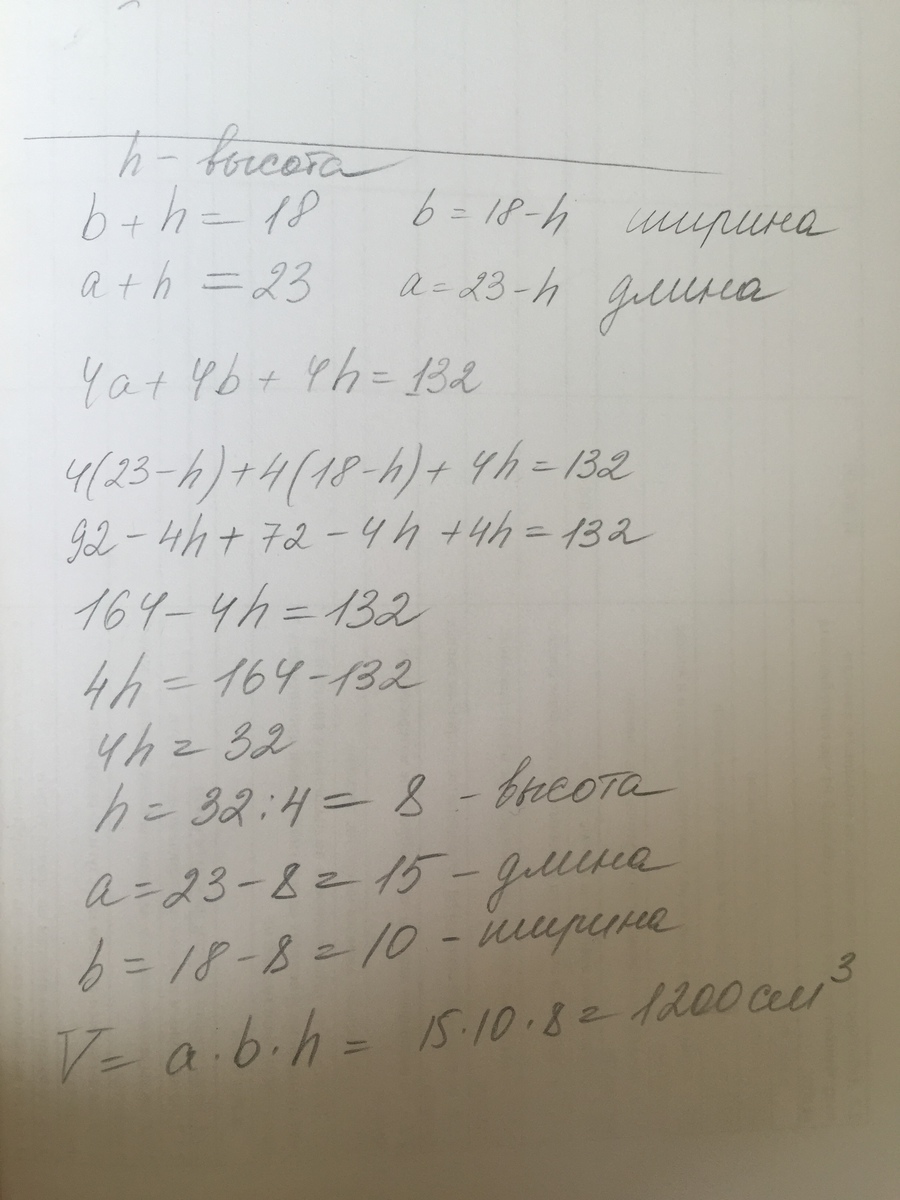 h - высота
b + h = 18 b = 18 - h ширина
a + h = 23 a = 23 - h длина
4a + 4b + 4h = 132
4(23 - h) + 4(18 - h) + 4h = 132
92 - 4h + 72 - 4h + 4h = 132
164 - 4h = 132
4h = 164 - 132
4h = 32
h = 32 : 4 = 8 - высота
a = 23 - 8 = 15 - длина
b = 18 - 8 = 10 - ширина
V = a · b · h = 15 · 10 · 8 = 1200 см³